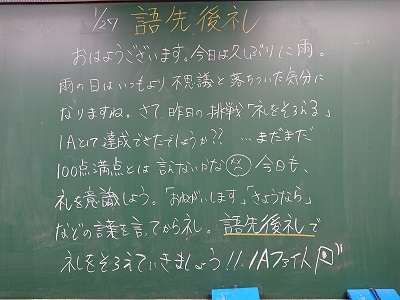 1/27 語先後礼
おはようございます。今日は久しぶりに雨。
雨の日はいつもより不思議と落ちついた気分に
なりますね。さて、昨日の挑戦「礼をそろえる」
1Aとして達成できたでしょうか?? …まだまだ
100点満点とは言えないかな 今日も、
礼を意識しよう。「おねがいします」「さようなら」
などの言葉を言ってから礼。語先後礼で
礼をそろえていきましょう!!. 1Aファイト